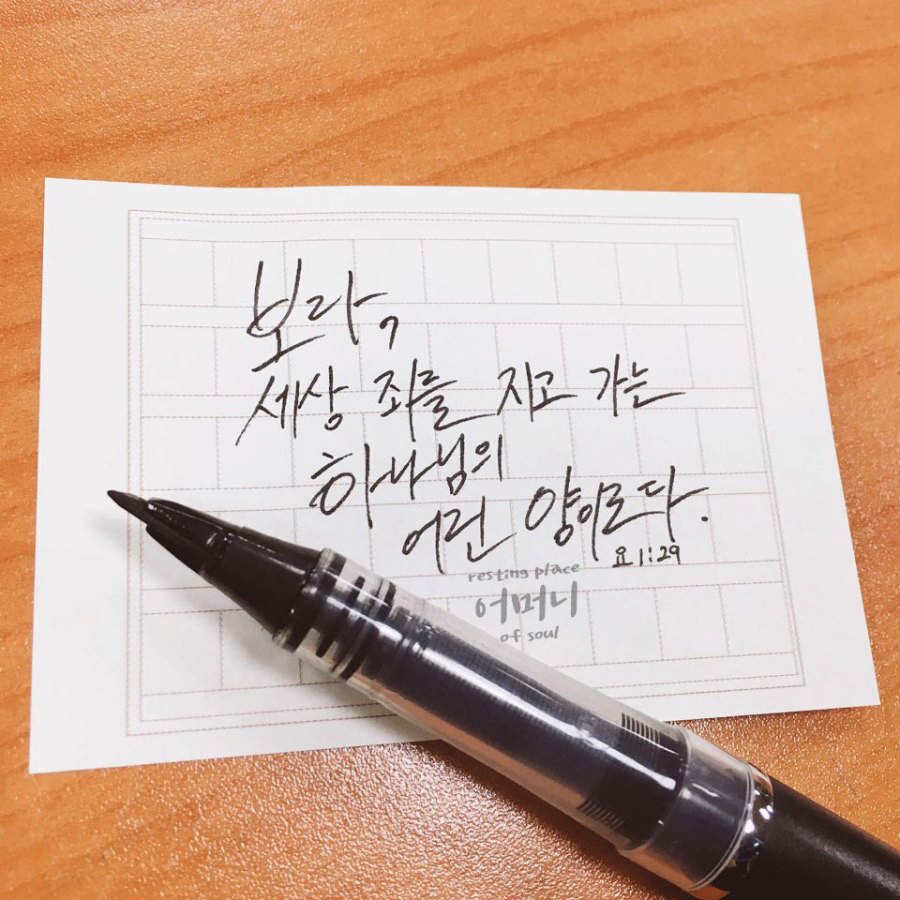 보라,
세상 죄를 지고 가는
하나님의
어린 양이로다.
요 1:29
resting place
어머니
of soul